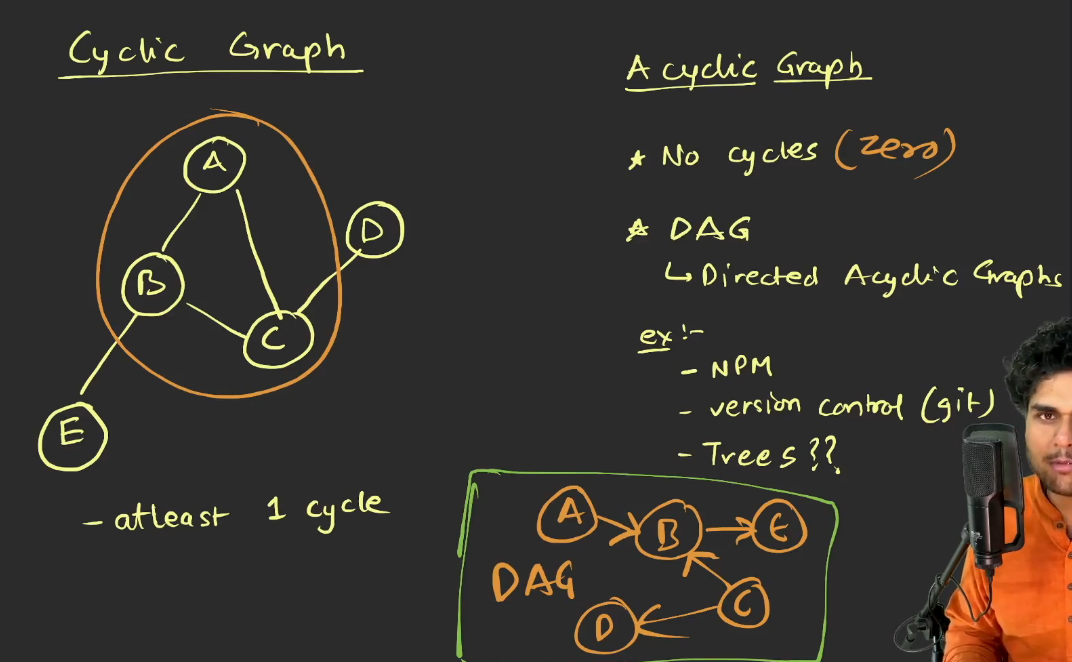 Cyclic Graph
A
B
C
D
E
- atleast 1 cycle
Acyclic Graph
* No cycles (zero)
* DAG
↳ Directed Acyclic Graphs
ex :-
- NPM
- version control (git)
- Trees ??
DAG
A
B
E
C
D